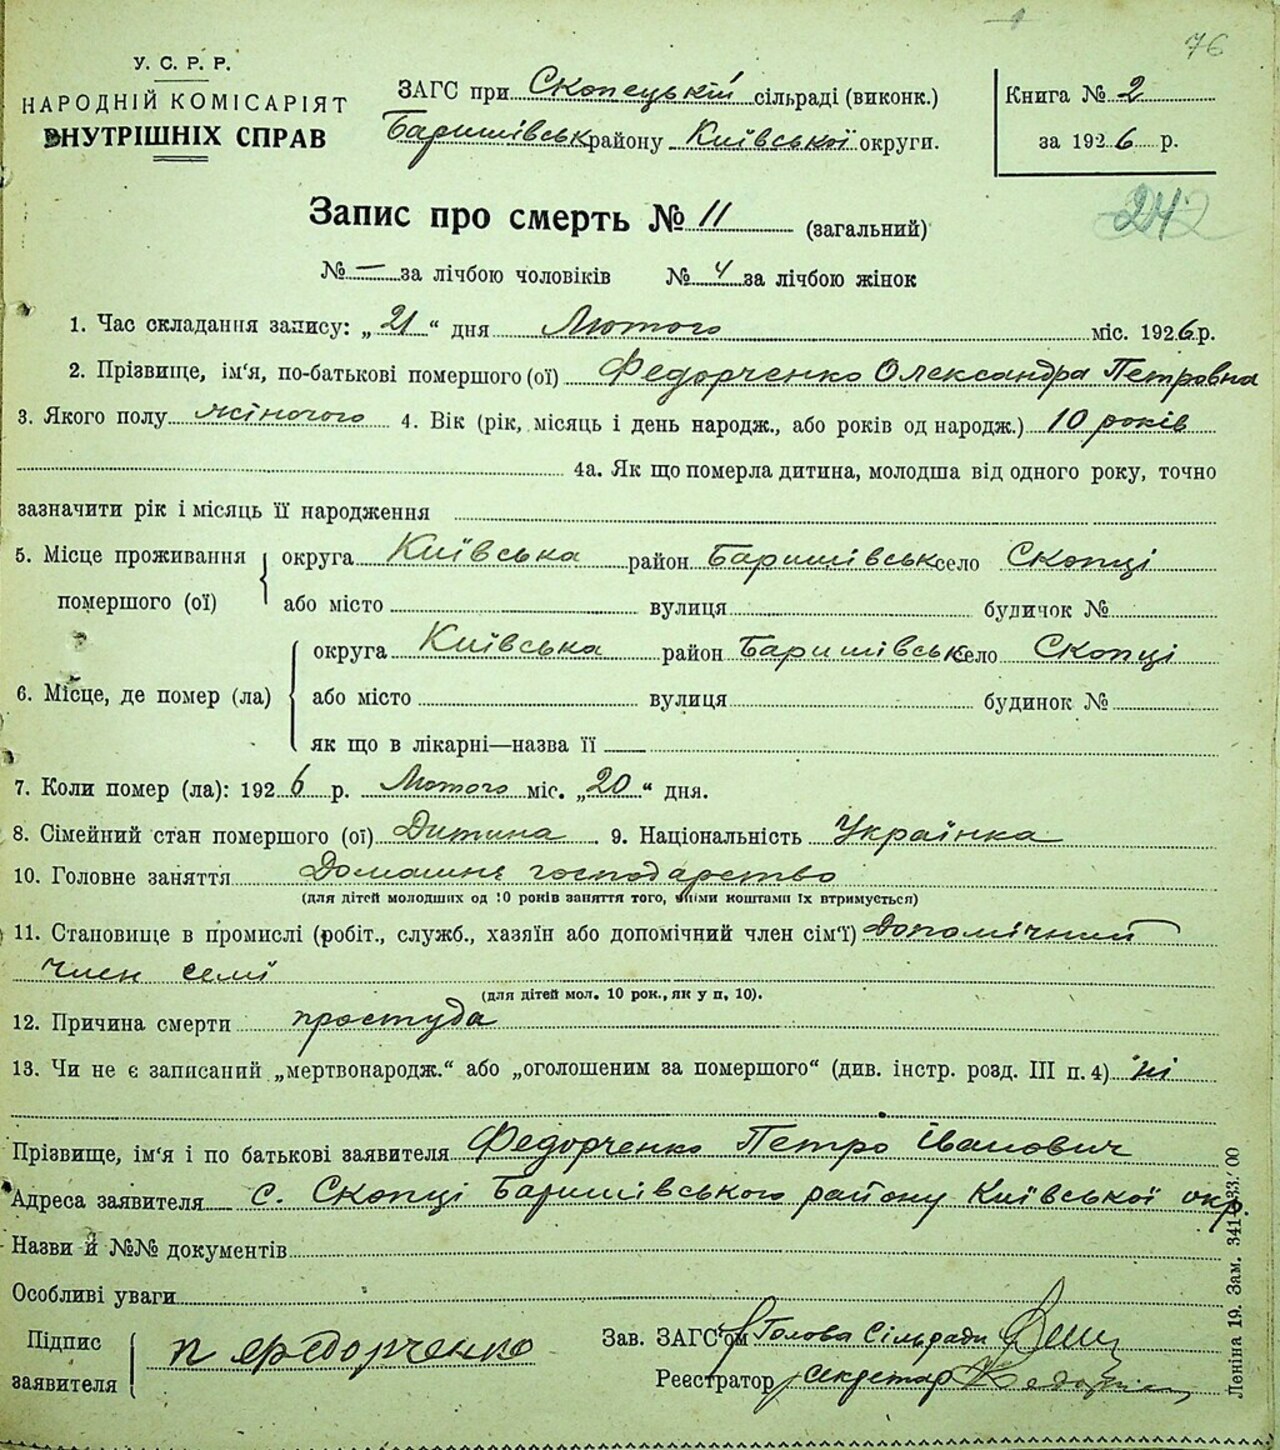 76
У. С. Р. Р.
НАРОДНІЙ КОМІСАРІЯТ
ВНУТРІШНІХ СПРАВ
ЗАГС при Скопецькій сільраді (виконк.)
Баришівськ району Київської округи.
Книга № 2
за 1926 р.
24
Запис про смерть № 11 (загальний)
№ — за лічбою чоловіків № 4 за лічбою жінок
1. Час складання запису: „21“ дня Лютого міс. 1926 р.
2. Прізвище, ім'я, по-батькові помершого (ої) Федорченко Олександра Петровна
3. Якого полу жіночого 4. Вік (рік, місяць і день народж., або років од народж.) 10 років
4а. Як що померла дитина, молодша від одного року, точно
зазначити рік і місяць її народження
5. Місце проживання помершого (ої) округа Київська район Баришівськ село Скопці
або місто вулиця будинок №
6. Місце, де помер (ла) округа Київська район Баришівськ село Скопці
або місто вулиця будинок №
як що в лікарні—назва її
7. Коли помер (ла): 1926 р. Лютого міс. „20“ дня.
8. Сімейний стан помершого (ої) Дитина 9. Національність Українка
10. Головне заняття Домашнє господарство
(для дітей молодших од 10 років заняття того, чиїми коштами їх втримується)
11. Становище в промислі (робіт., служб., хазяїн або допомічний член сім'ї) допомічний
член семї
(для дітей мол. 10 рок., як у п, 10).
12. Причина смерти простуда
13. Чи не є записаний „мертвонародж.“ або „оголошеним за помершого“ (див. інстр. розд. III п. 4) ні
Прізвище, ім'я і по батькові заявителя Федорченко Петро Іванович
Адреса заявителя с. Скопці Баришівського району Київської окр.
Назви й №№ документів
Особливі уваги
Підпис заявителя П Федорченко
Зав. ЗАГС'ом Голова Сільради
Реєстратор секретар
Леніна 19. Зам. 341